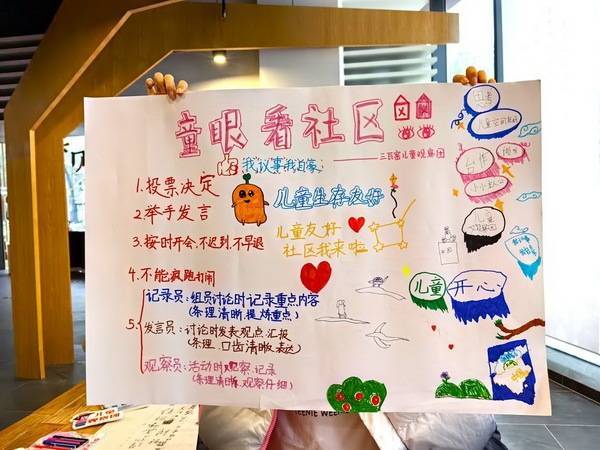 童眼看社区
我议事我自豪
三瓦窑儿童观察团
儿童生存友好
1.投票决定
2.举手发言
3.按时开会,不迟到,不早退
儿童友好
社区我来啦
4.不能疯跑打闹
5.
记录员:组员讨论时记录重点内容
(条理清晰,提炼重点)
发言员:讨论时发表观点、汇报
(条理、口齿清晰、表达)
观察员:活动时观察、记录
(条理清晰、观察仔细)
思考
儿童空间友好
合作
小小达人
儿童
儿童
开心